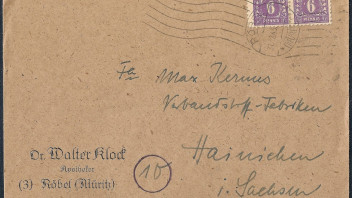 6 6
Fa
Max Kermes
Verbandstoff-Fabriken
Hainichen
i. Sachsen
Dr. Walter Klock
Apotheker
(3) Röbel (Müritz)
10